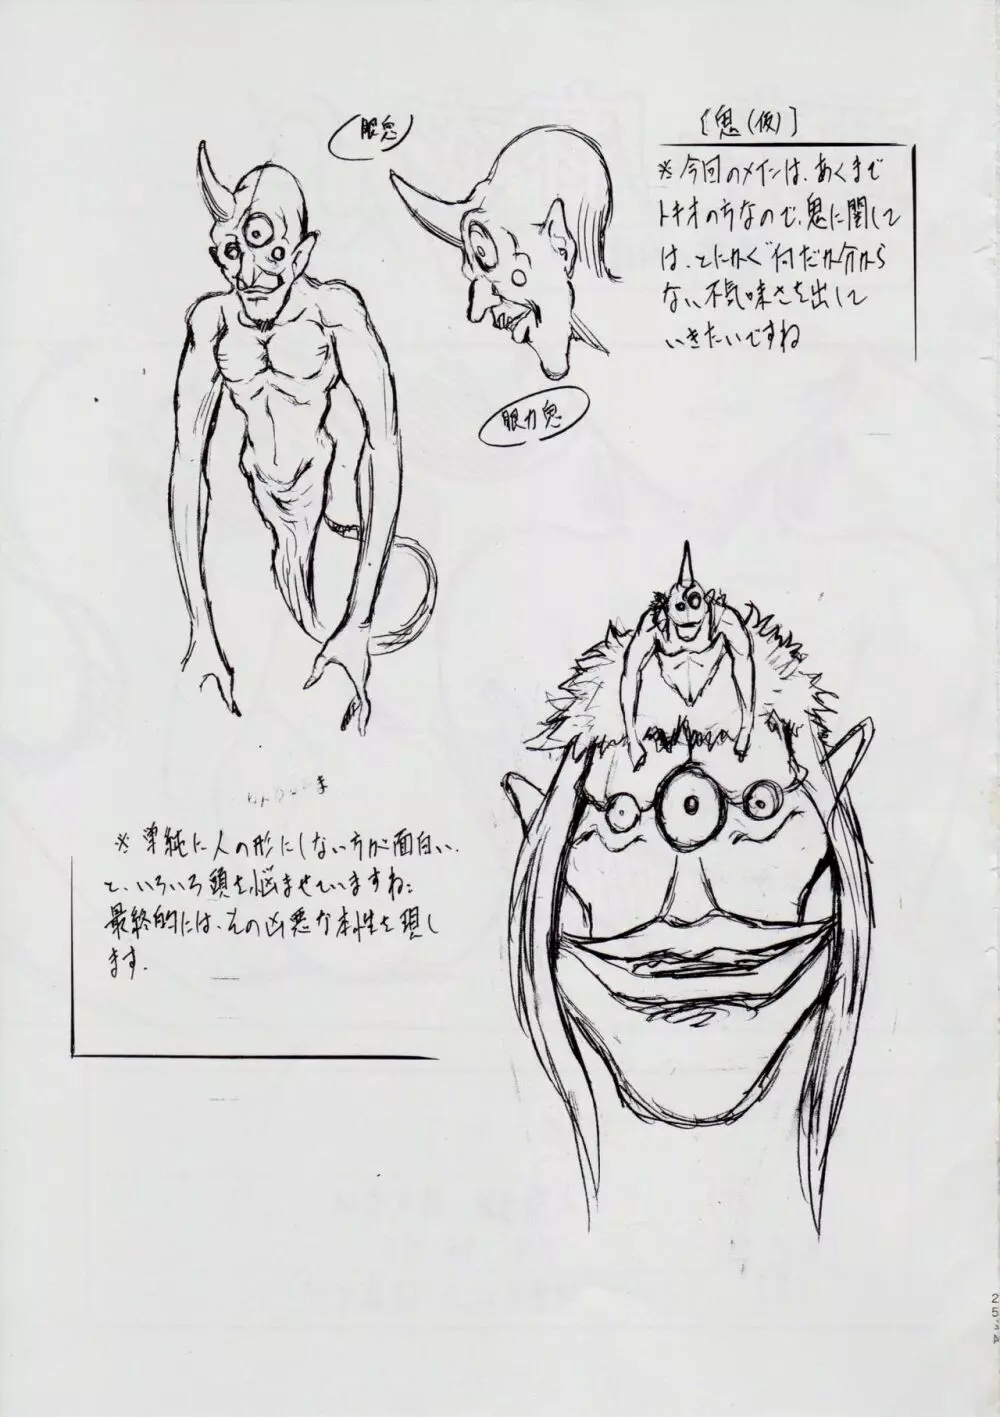 [鬼(仮)]
※今回のメインは、あくまで
トキオの方なので、鬼に関して
は、とにかく何だか分から
ない不気味さを出して
いきたいですね
眼鬼
眼力鬼
※単純に人の形にしない方が面白い、
と、いろいろ頭を悩ませていますね。
最終的には、その凶悪な本性を現し
ます.
25